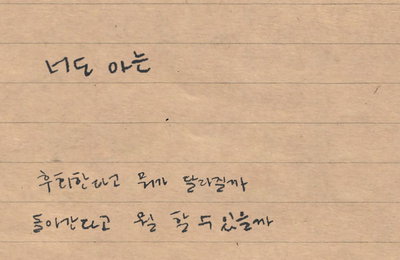 너도 아는
후회한다고 뭐가 달라질까
돌아간다고 뭘 할 수 있을까